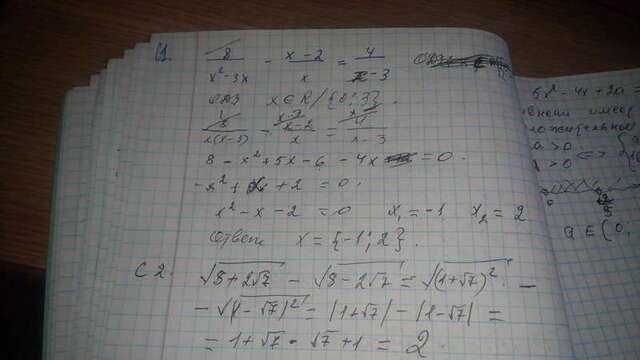 C1. 8/(x²-3x) - (x-2)/x = 4/(x-3)
ОДЗ x∈R/{0;3}.
8/(x(x-3)) - (x-2)/x = 4/(x-3)
8 - x² + 5x - 6 - 4x = 0.
-x² + x + 2 = 0.
x² - x - 2 = 0 x₁ = -1 x₂ = 2
Ответ x = {-1; 2}.
C2. √(8+2√7) - √(8-2√7) = √(1+√7)² -
- √(1-√7)² = |1+√7| - |1-√7| =
= 1+√7 - √7+1 = 2
5x² - 4x + 2a =
a > 0
> 0 <=>
a ∈ (0,